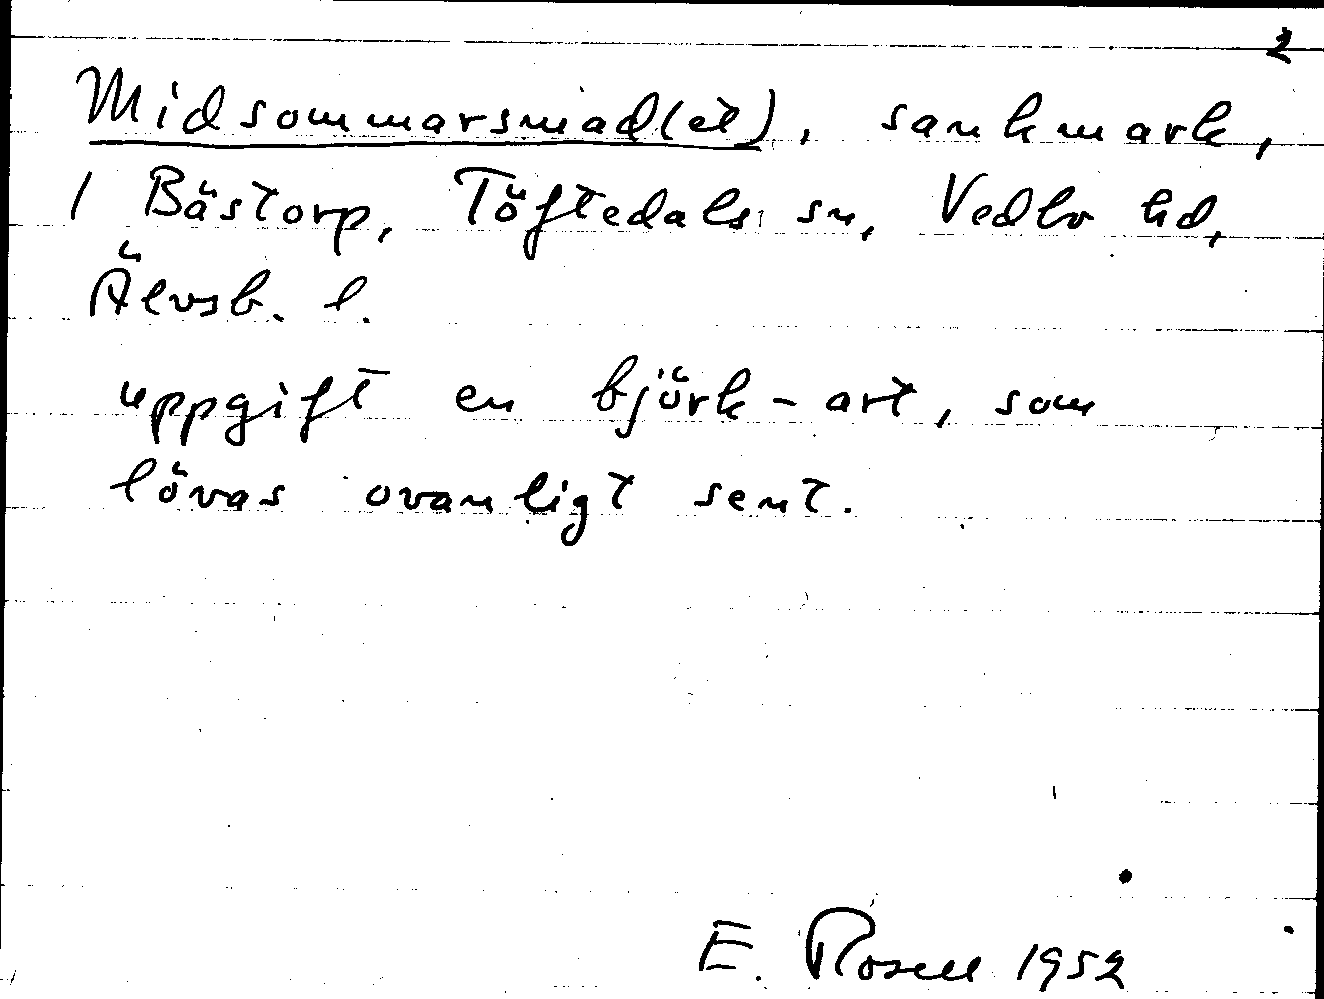 2
Midsommarsmad(et), sankmark,
/ Bästorp, Töftedals sn, Vedbo hd,
Älvsb. l.
uppgift en björk-art, som
lövas ovanligt sent.
E. Rosell 1952